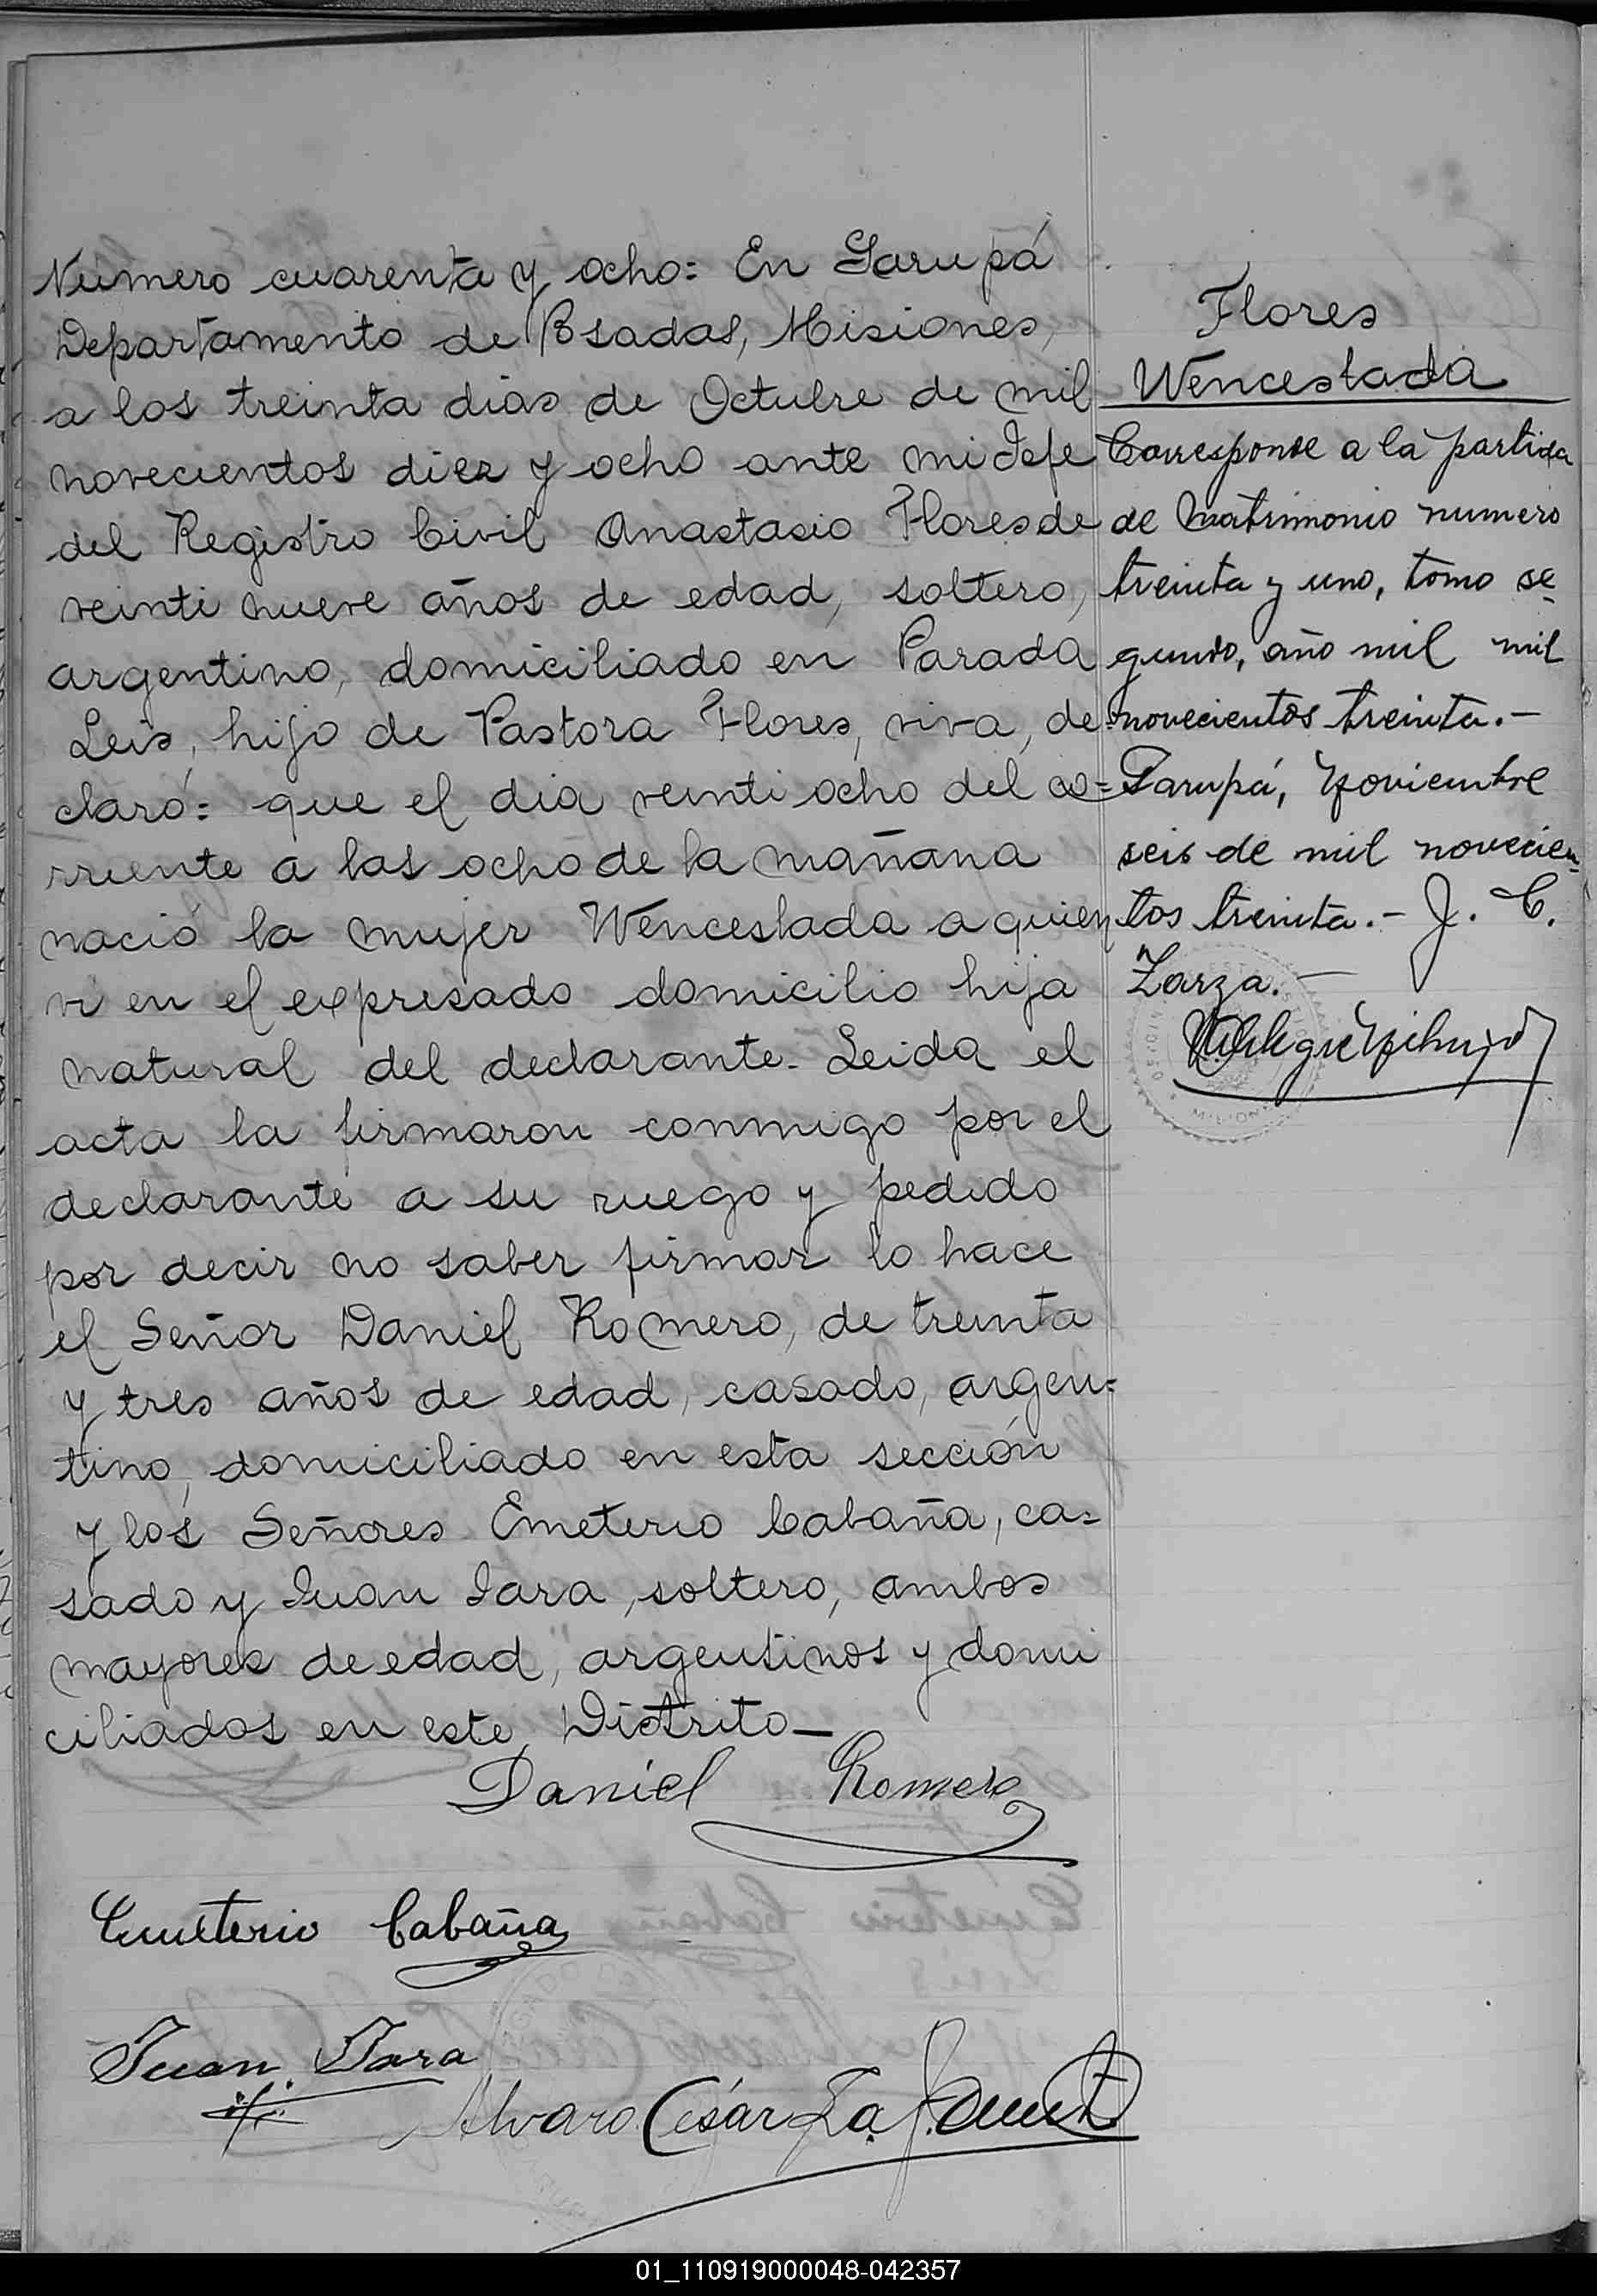 Numero cuarenta y ocho: En Garupá
Departamento de Posadas, Misiones,
a los treinta dias de Octubre de mil
novecientos diez y ocho ante mi Jefe
del Registro Civil Anastasio Flores de
veinti nueve años de edad, soltero,
argentino, domiciliado en Parada
Leis, hijo de Pastora Flores, viva, de-
claró: que el dia veinti ocho del co=
rriente a las ocho de la mañana
nació la mujer Wenceslada a quien
vi en el expresado domicilio hija
natural del declarante. Leida el
acta la firmaron conmigo por el
declarante a su ruego y pedido
por decir no saber firmar lo hace
el Señor Daniel Romero, de treinta
y tres años de edad, casado, argen=
tino, domiciliado en esta sección
y los Señores Emeterio Cabaña, ca=
sado y Juan Jara, soltero, ambos
mayores de edad, argentinos y domi
ciliados en este Distrito—
Daniel Romero
Emeterio Cabaña
Juan Jara
Alvaro César
Flores
Wenceslada
Corresponde a la partida
de Matrimonio numero
treinta y uno, tomo se-
gundo, año mil mil
novecientos treinta.-
Garupá, Noviembre
seis de mil novecien-
tos treinta.- J. C.
Zarza.-
01_110919000048-042357